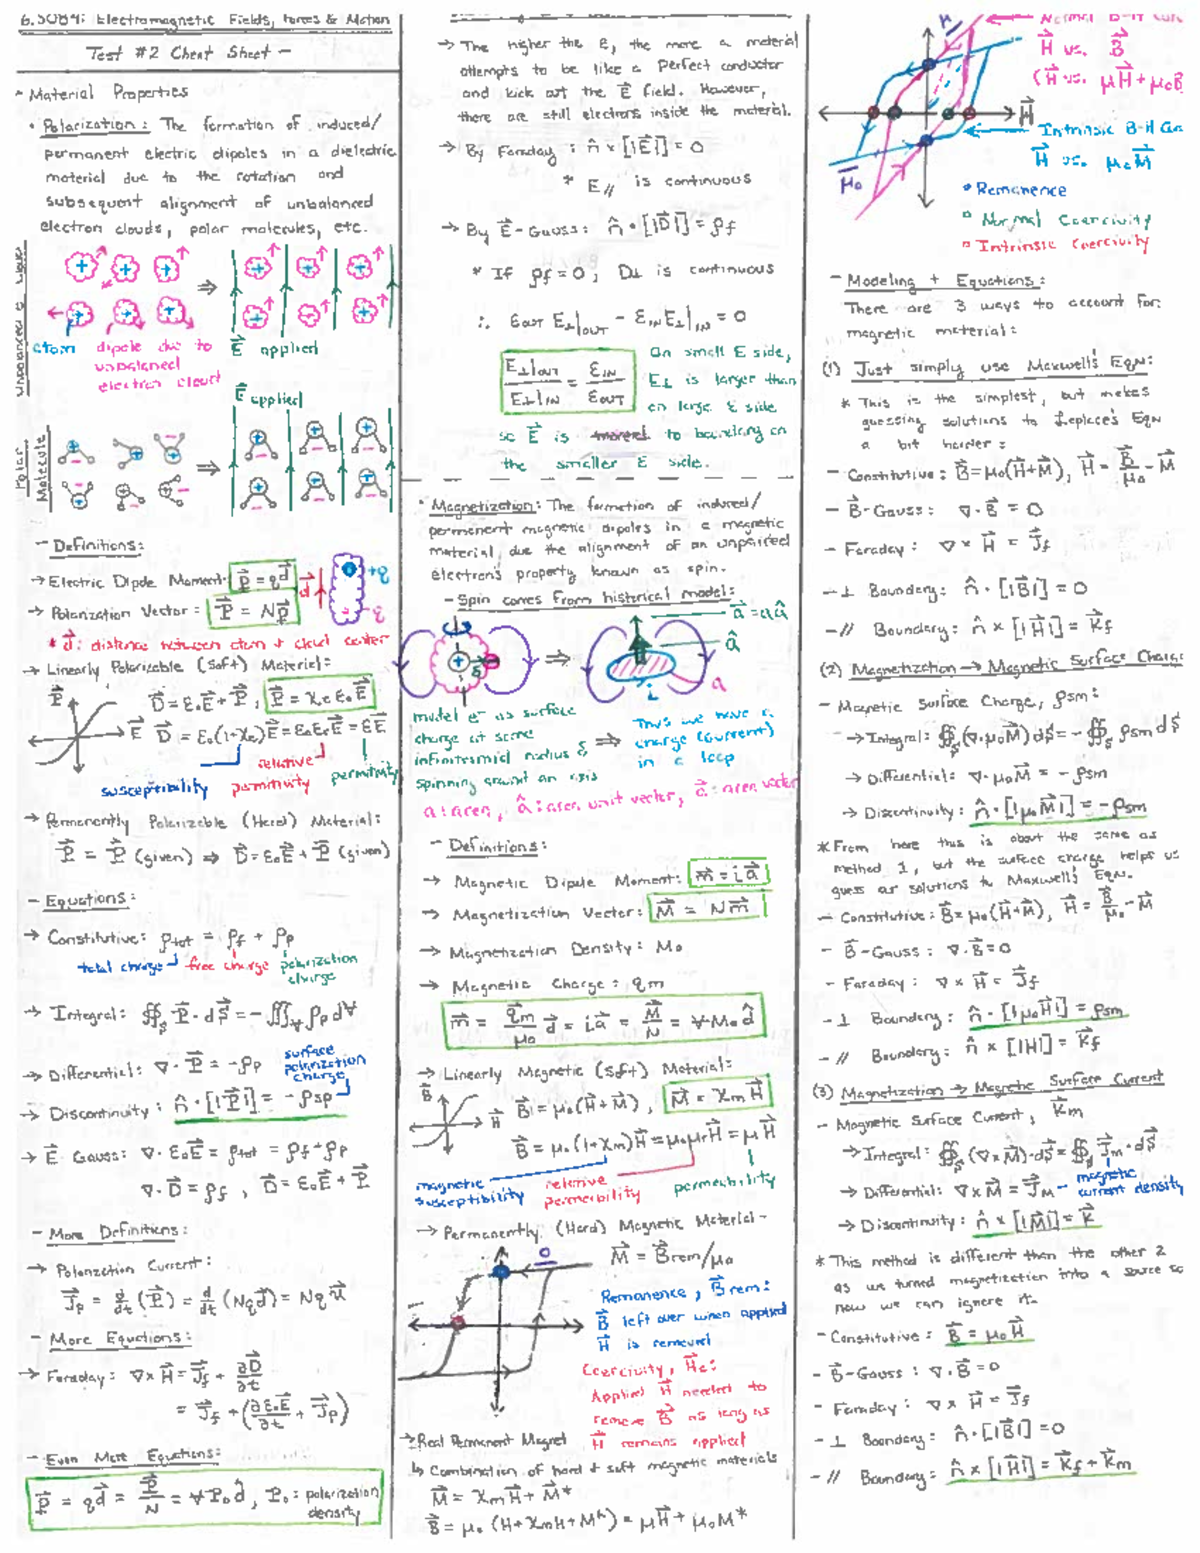 6.3084: Electromagnetic Fields, Forces & Motion
Test #2 Cheat Sheet -
- Material Properties
• Polarization: The formation of induced/
permanent electric dipoles in a dielectric
material due to the rotation and
subsequent alignment of unbalanced
electron clouds, polar molecules, etc.
atom dipole due to
unbalanced
electron cloud
E⃗ applied
E⃗ applied
Polar
Molecule
- Definitions:
→ Electric Dipole Moment: p⃗ = qd⃗
+q
d⃗
-q
→ Polarization Vector: P⃗ = Np⃗
* d⃗: distance between atom & cloud center
→ Linearly Polarizable (Soft) Material:
P⃗
E⃗
D⃗ = ε₀E⃗ + P⃗, P⃗ = χₑε₀E⃗
D⃗ = ε₀(1+χₑ)E⃗ = ε₀εᵣE⃗ = εE⃗
susceptibility
relative permitivity
permitivity
→ Permanently Polarizable (Hard) Material:
P⃗ = P⃗ (given) ⇒ D⃗ = ε₀E⃗ + P⃗ (given)
- Equations:
→ Constitutive: ρtot = ρf + ρp
total charge free charge polarization
charge
→ Integral: ∯s P⃗ · dS⃗ = -∭V ρp dV
→ Differential: ∇ · P⃗ = -ρp
surface
polarization
charge
→ Discontinuity: n̂ · [|P⃗|] = -ρsp
→ E⃗ Gauss: ∇ · ε₀E⃗ = ρtot = ρf + ρp
∇ · D⃗ = ρf, D⃗ = ε₀E⃗ + P⃗
- More Definitions:
→ Polarization Current:
J⃗p = d/dt (P⃗) = d/dt (Nqd⃗) = Nqu⃗
- More Equations:
→ Faraday: ∇×H⃗ = J⃗f + ∂D⃗/∂t
= J⃗f + (∂ε₀E⃗/∂t + J⃗p)
- Even More Equations:
p⃗ = qd⃗ = P⃗/N = VP₀d̂, P₀: polarization
density
→ The higher the ε, the more a material
attempts to be like a perfect conductor
and kick out the E⃗ field. However,
there are still electrons inside the material.
→ By Faraday: n̂ × [|E⃗|] = 0
* E// is continuous
→ By E⃗-Gauss: n̂ · [|D⃗|] = ρf
* If ρf = 0, D⊥ is continuous
∴ εOUT E⊥|OUT - εIN E⊥|IN = 0
E⊥|OUT / E⊥|IN = εIN / εOUT
On small ε side,
E⊥ is larger than
on large ε side
so E⃗ is to boundary on
the smaller ε side.
• Magnetization: The formation of induced/
permanent magnetic dipoles in a magnetic
material due the alignment of an unpaired
electron's property known as spin.
- Spin comes from historical model:
a⃗ = aâ
â
i
a
model e⁻ as surface
charge at some
infinitesimal radius &
spinning around an axis
⇒
Thus we have a
charge (current)
in a loop
a: area, â: area unit vector, a⃗: area vector
- Definitions:
→ Magnetic Dipole Moment: m⃗ = ia⃗
→ Magnetization Vector: M⃗ = Nm⃗
→ Magnetization Density: M₀
→ Magnetic Charge: qm
m⃗ = qm/μ₀ d⃗ = ia⃗ = M⃗/N = VM₀d̂
→ Linearly Magnetic (Soft) Material:
B⃗
H⃗
B⃗ = μ₀(H⃗+M⃗), M⃗ = χmH⃗
B⃗ = μ₀(1+χm)H⃗ = μ₀μrH⃗ = μH⃗
magnetic
susceptibility
relative
permeability
permeability
→ Permanently (Hard) Magnetic Material-
M⃗ = B⃗rem/μ₀
Remanence, B⃗rem:
B⃗ left over when applied
H⃗ is removed
Coercivity, H⃗c:
Applied H⃗ needed to
remove B⃗ as long as
H⃗ remains applied
→ Real Permanent Magnet
↳ Combination of hard + soft magnetic materials
M⃗ = χmH⃗ + M⃗*
B⃗ = μ₀(H + χmH + M*) = μH⃗ + μ₀M*
μ
Normal B-H
H⃗ vs. B⃗
(H⃗ vs. μH⃗ + μ₀
H⃗
Intrinsic B-H
H⃗ vs. μ₀M⃗
μ₀
• Remanence
• Normal Coercivity
• Intrinsic Coercivity
- Modeling + Equations:
There are 3 ways to account for
magnetic material:
(1) Just simply use Maxwell's Eqn:
* This is the simplest, but makes
guessing solutions to Laplace's Eqn
a bit harder:
- Constitutive: B⃗ = μ₀(H⃗+M⃗), H⃗ = B⃗/μ₀ - M⃗
- B⃗-Gauss: ∇ · B⃗ = 0
- Faraday: ∇ × H⃗ = J⃗f
- ⊥ Boundary: n̂ · [|B⃗|] = 0
- // Boundary: n̂ × [|H⃗|] = K⃗f
(2) Magnetization → Magnetic Surface Charge
- Magnetic Surface Charge, ρsm:
→ Integral: ∯s (∇·μ₀M⃗) dS⃗ = -∯s ρsm dS⃗
→ Differential: ∇·μ₀M⃗ = -ρsm
→ Discontinuity: n̂ · [|μ₀M⃗|] = -ρsm
* From here this is about the same as
method 1, but the surface charge helps us
guess our solutions to Maxwell's Eqn.
- Constitutive: B⃗ = μ₀(H⃗+M⃗), H⃗ = B⃗/μ₀ - M⃗
- B⃗-Gauss: ∇ · B⃗ = 0
- Faraday: ∇ × H⃗ = J⃗f
- ⊥ Boundary: n̂ · [|μ₀H⃗|] = ρsm
- // Boundary: n̂ × [|H|] = K⃗f
(3) Magnetization → Magnetic Surface Current
- Magnetic Surface Current, K⃗m
→ Integral: ∯s (∇×M⃗)·dS⃗ = ∯s J⃗m · dS⃗
→ Differential: ∇×M⃗ = J⃗M - magnetic
current density
→ Discontinuity: n̂ × [|M⃗|] = K⃗
* This method is different than the other 2
as we turned magnetization into a source so
now we can ignore it.
- Constitutive: B⃗ = μ₀H⃗
- B⃗-Gauss: ∇ · B⃗ = 0
- Faraday: ∇ × H⃗ = J⃗f
- ⊥ Boundary: n̂ · [|B⃗|] = 0
- // Boundary: n̂ × [|H⃗|] = K⃗f + K⃗m